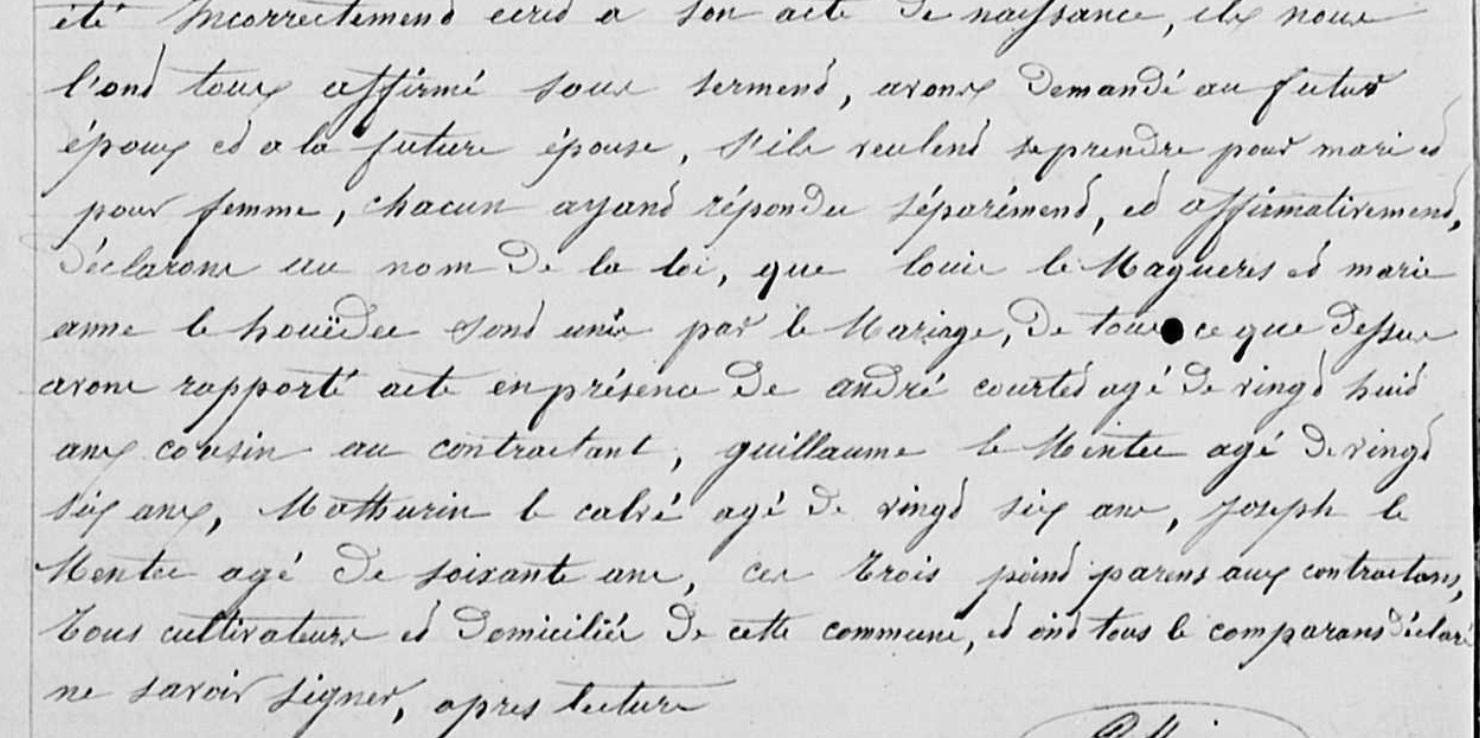 été Incorrectement ecrit a son acte de naissance, ils nous
l'ont tous affirmé sous serment, avons demandé au futur
époux et a la future épouse, s'ils veulent se prendre pour mari et
pour femme, chacun ayant répondu séparément, et affirmativement,
déclarons au nom de la loi, que louis le Magueres et marie
anne le houïdec sont unis par le Mariage, de tous ce que dessus
avons rapporté acte en présence de andré courtet agé de vingt huit
ans cousin au contractant, guillaume le Mentec agé de vingt
six ans, Mathurin le calvé agé de vingt six ans, joseph le
Mentec agé de soixante ans, ces trois point parens aux contractans,
tous cultivateurs et domiciliés de cette commune, et ont tous le comparans déclaré
ne savoir signer, apres lecture